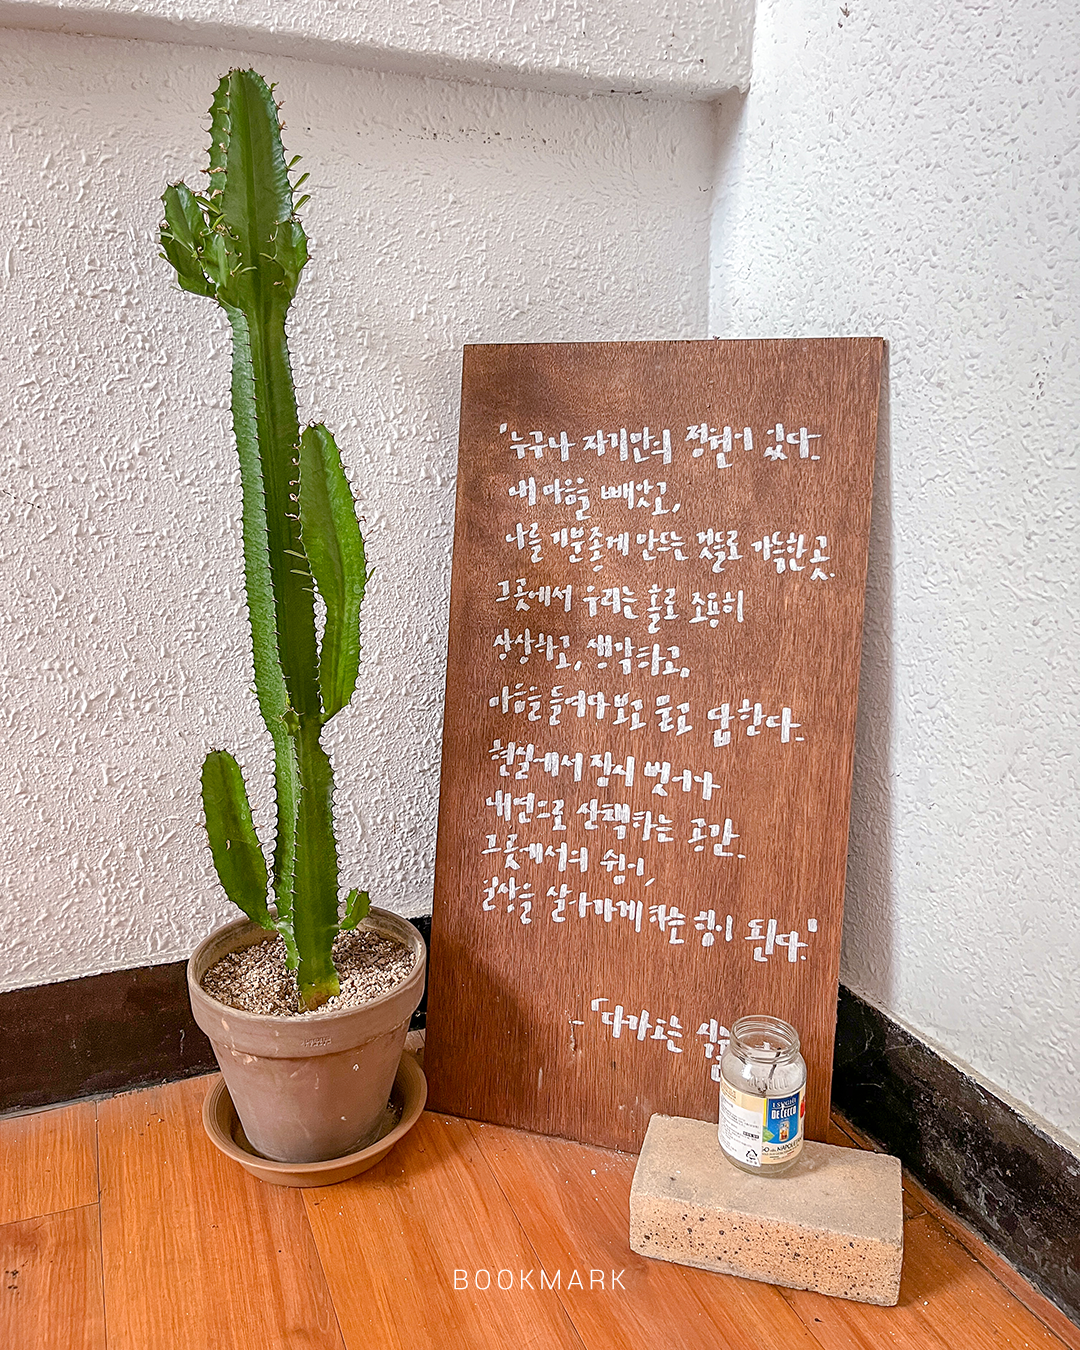 '누구나 자기만의 정원이 있다.
내 마음을 빼앗고,
나를 기분좋게 만드는 것들로 가득한 곳.
그곳에서 우리는 홀로 조용히
상상하고, 생각하고,
마음을 들여다보고 묻고 답한다.
현실에서 잠시 벗어나
내면으로 산책하는 공간.
그곳에서의 쉼이,
일상을 살아가게 하는 힘이 된다.'
- 「다가오는
DE CECCO
BOOKMARK